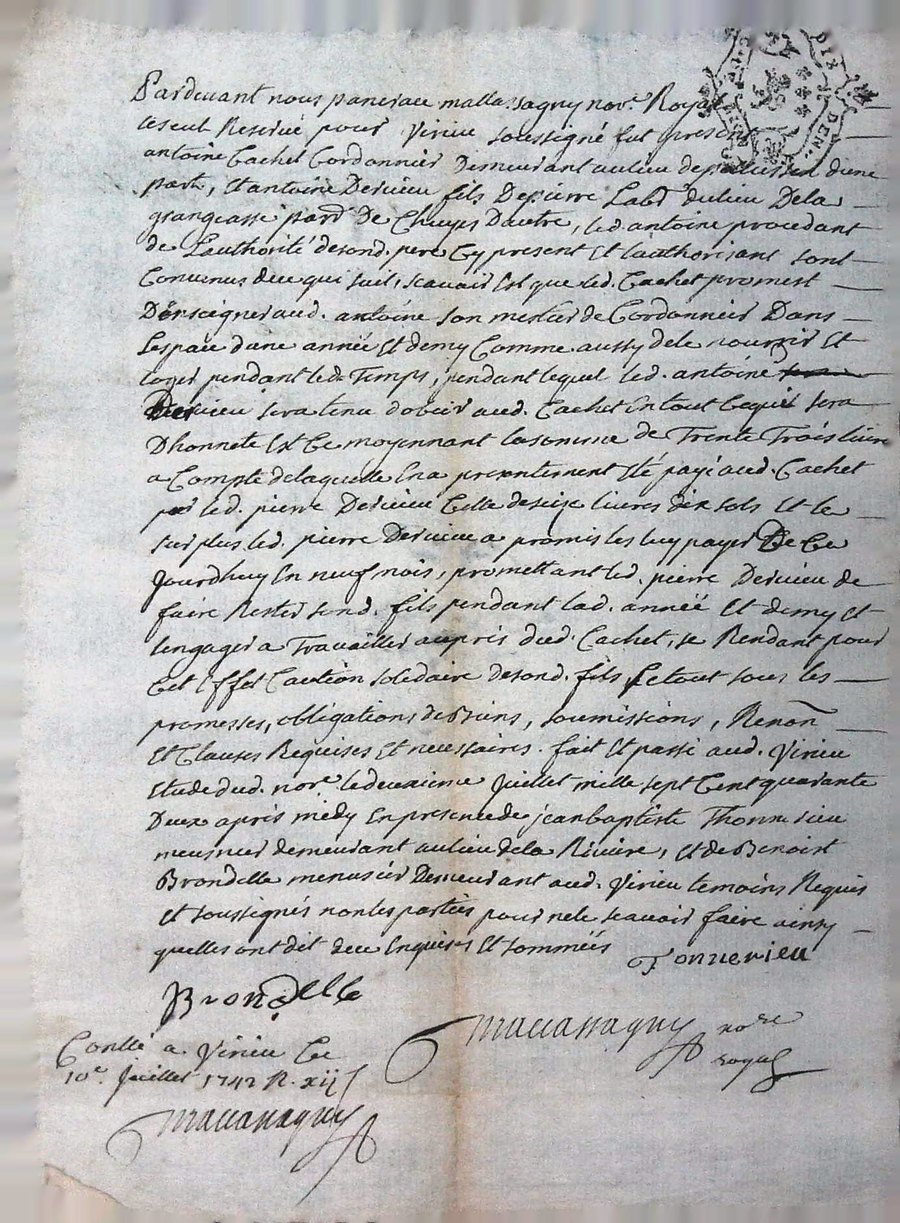 Pardevant nous pancrace mallassagny no.re Royal
le seul Reservé pour Virieu soussigné fut present
antoine Cachet Cordonnier Demeurant au lieu de dune
part, Et antoine Dervieu fils De pierre Lab.r du lieu De la
grangeasse par.se De Cheyps Dautre, led. antoine procedant
de Lauthorité desond. pere Cy present Et Lauthorisant sont
Convenus dece qui suit, scavoir Est que led. Cachet promest
Denseigner aud. antoine son mestier de Cordonnier Dans
Lespace dune année Et demy Comme aussy dele nourrir Et
loger pendant led. Temps, pendant lequel led. antoine
Dervieu sera tenu dobeir aud. Cachet En tout Cequi sera
Dhonnete Et Ce moyennant la somme de Trente Trois livres
a Compte delaquelle En a presentement Eté payé aud. Cachet
par led. pierre Dervieu Celle de seize livres dix sols Et le
surplus led. pierre Dervieu a promis les luy payer De Ce
Jourdhuy En neuf mois, promettant led. pierre Dervieu de
faire Rester sond. fils pendant lad. année Et demy Et
lengager a Travailler aupres dud. Cachet, se Rendant pour
Cet Effet Caution solidaire desond. fils, Le tout sous les
promesses, obligations de Biens, soumissions, Renon
Et Clauses Requises Et necessaires. fait Et passé aud. Virieu
Etude dud. no.re le deuxieme Juillet mille sept Cent quarante
Deux après midy En presence de jean baptiste Thonnerieu
meusnier demeurant au lieu dela Riviere, Et de Benoist
Brondelle menusier Demeurant aud. Virieu temoins Requis
Et soussignés non les parties pour ne le scavoir faire ainsy
quelles ont dit de ce Enquises Et sommées
Tonnerieu
Brondelle
mallassagny no.re
royal
Conllé a Virieu Ce
10.e Juillet 1742 R. xij s
mallassagny